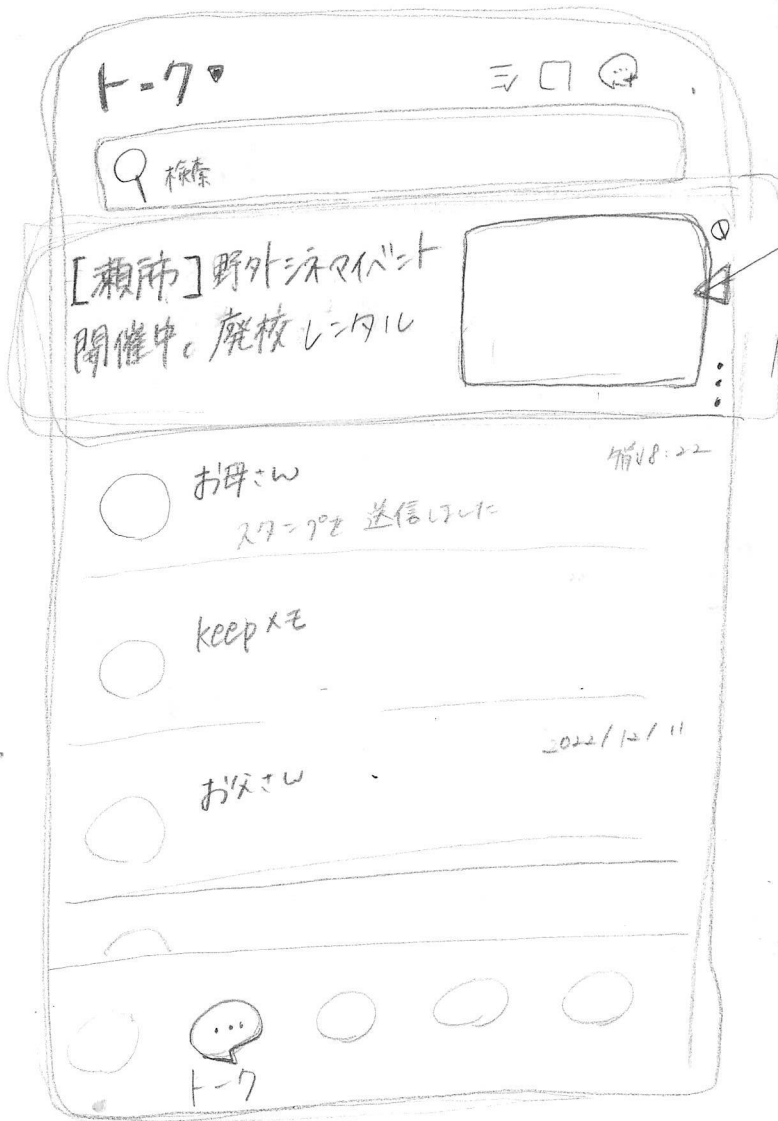 トーク
検索
野外シネマイベント
開催中。廃校レンタル
お母さん
8:22
スタンプを 送信しました
keepメモ
2022/12/11
お父さん
トーク